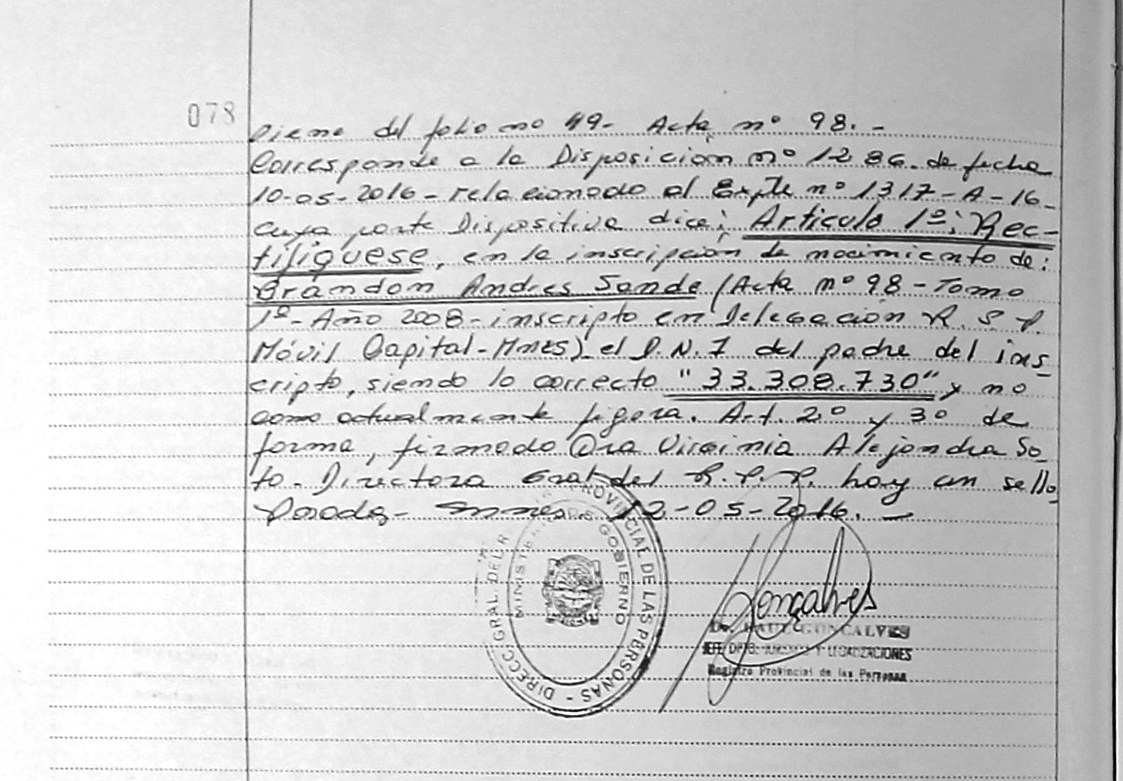 078
Viene del folio nº 49- Acta nº 98.-
Corresponde a la Disposición nº 1286. de fecha
10-05-2016- relacionado al Expte nº 1317-A-16-
cuya parte Dispositiva dice; Articulo 1º; Rec-
tifíquese, en la inscripción de nacimiento de:
Brandon Andres Sande (Acta nº 98-Tomo
1º-Año 2008-inscripto en Delegacion R. S. P.
Móvil Capital-Mnes) el D.N.I del padre del ins-
cripto, siendo lo correcto "33.308.730" y no
como actualmente figera. Art. 2º y 3º de
forma, firmado Dra Virginia Alejandra So-
to. Directora Gral del R.P.P. hay un sello
Posadas- Mnes. 12-05-2016.-
DIRECC. GRAL. DEL R PROVINCIAL DE LAS PERSONAS -
MINISTERIO DE GOBIERNO
Gonçalves
Dr. RAUL GONCALVES
JEFE DPTO. JURIDICO Y LEGALIZACIONES
Registro Provincial de las Personas